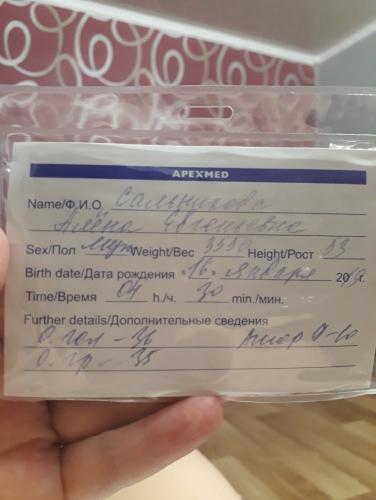 APEXMED
Name/Ф.И.О. Сальникова
Алёна Евгеньевна
Sex/Пол муж Weight/Вес 3550 Height/Рост 53
Birth date/Дата рождения «16» января 2019
Time/Время 04 h./ч. 30 min./мин.
Further details/Дополнительные сведения
О. гол – 36 Апгар 9-10
О. гр – 35